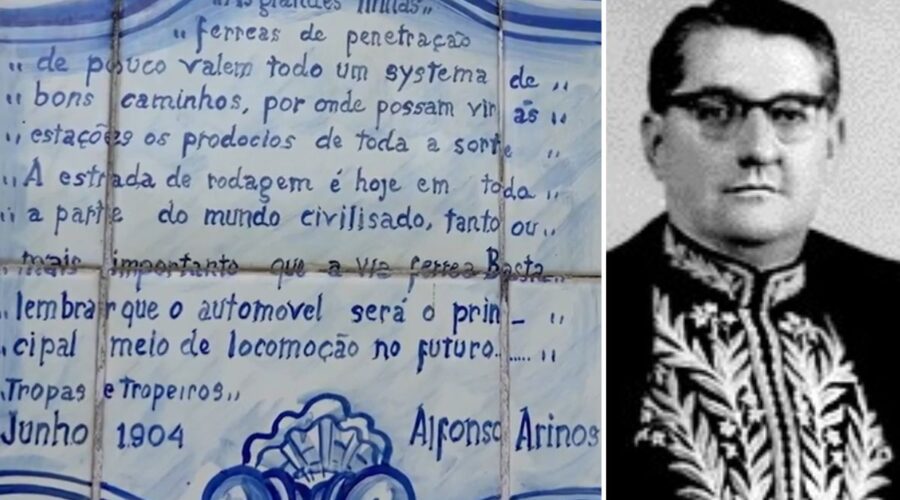 As grandes linhas „
„ ferreas de penetração
„ de pouco valem todo um systema de „
„ bons caminhos, por onde possam vir ás „
„ estações os prodocios de toda a sorte „
„ A estrada de rodagem é hoje em toda „
„ a parte do mundo civilisado, tanto ou „
„ mais importanto que a via ferrea Basta „
„ lembrar que o automovel será o prin_ „
„ cipal meio de locomoção no futuro..... „
Tropas e Tropeiros „
Junho 1904 Alfonso Arinos